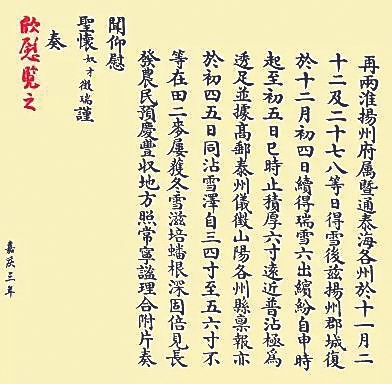 再兩淮揚州府属暨通泰海各州於十一月二
十二及二十七八等日得雪後茲揚州郡城復
於十二月初四日續得瑞雪六出繽紛自申時
起至初五日巳時止積厚六寸遠近普沾極爲
透足並據髙郵泰州儀徵山陽各州縣禀報亦
於初四五日同沾雪澤自三四寸至五六寸不
等在田二麥屢獲冬雪滋培蟠根深固倍見長
發農民預慶豐収地方照常寧謐理合附片奏
聞仰慰
聖懷奴才徵瑞謹
奏
欣慰覧之
嘉慶三年